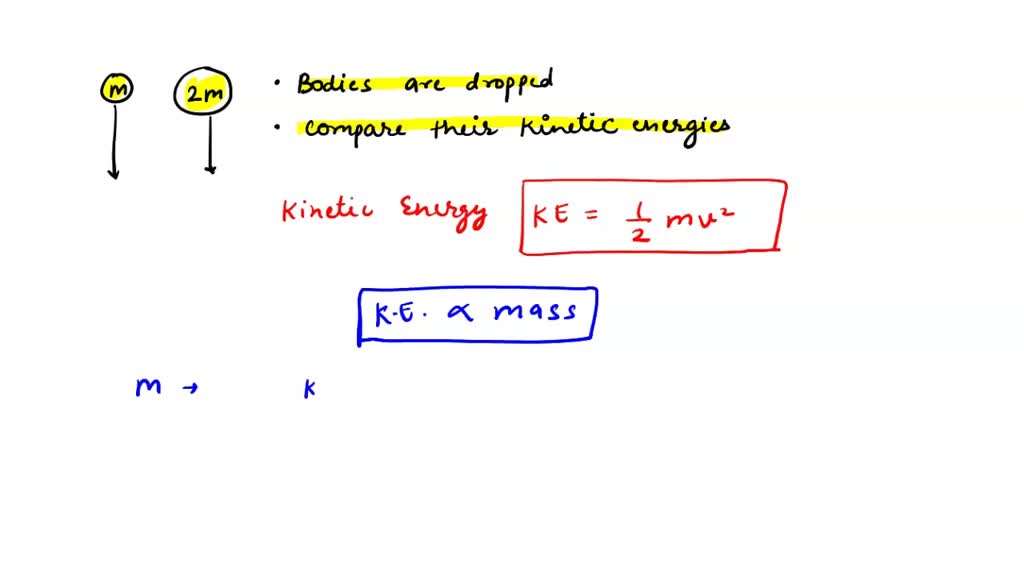 m 2m • Bodies are dropped
• Compare their kinetic energies
Kinetic Energy KE = 1/2 mv²
K.E. ∝ mass
m → K